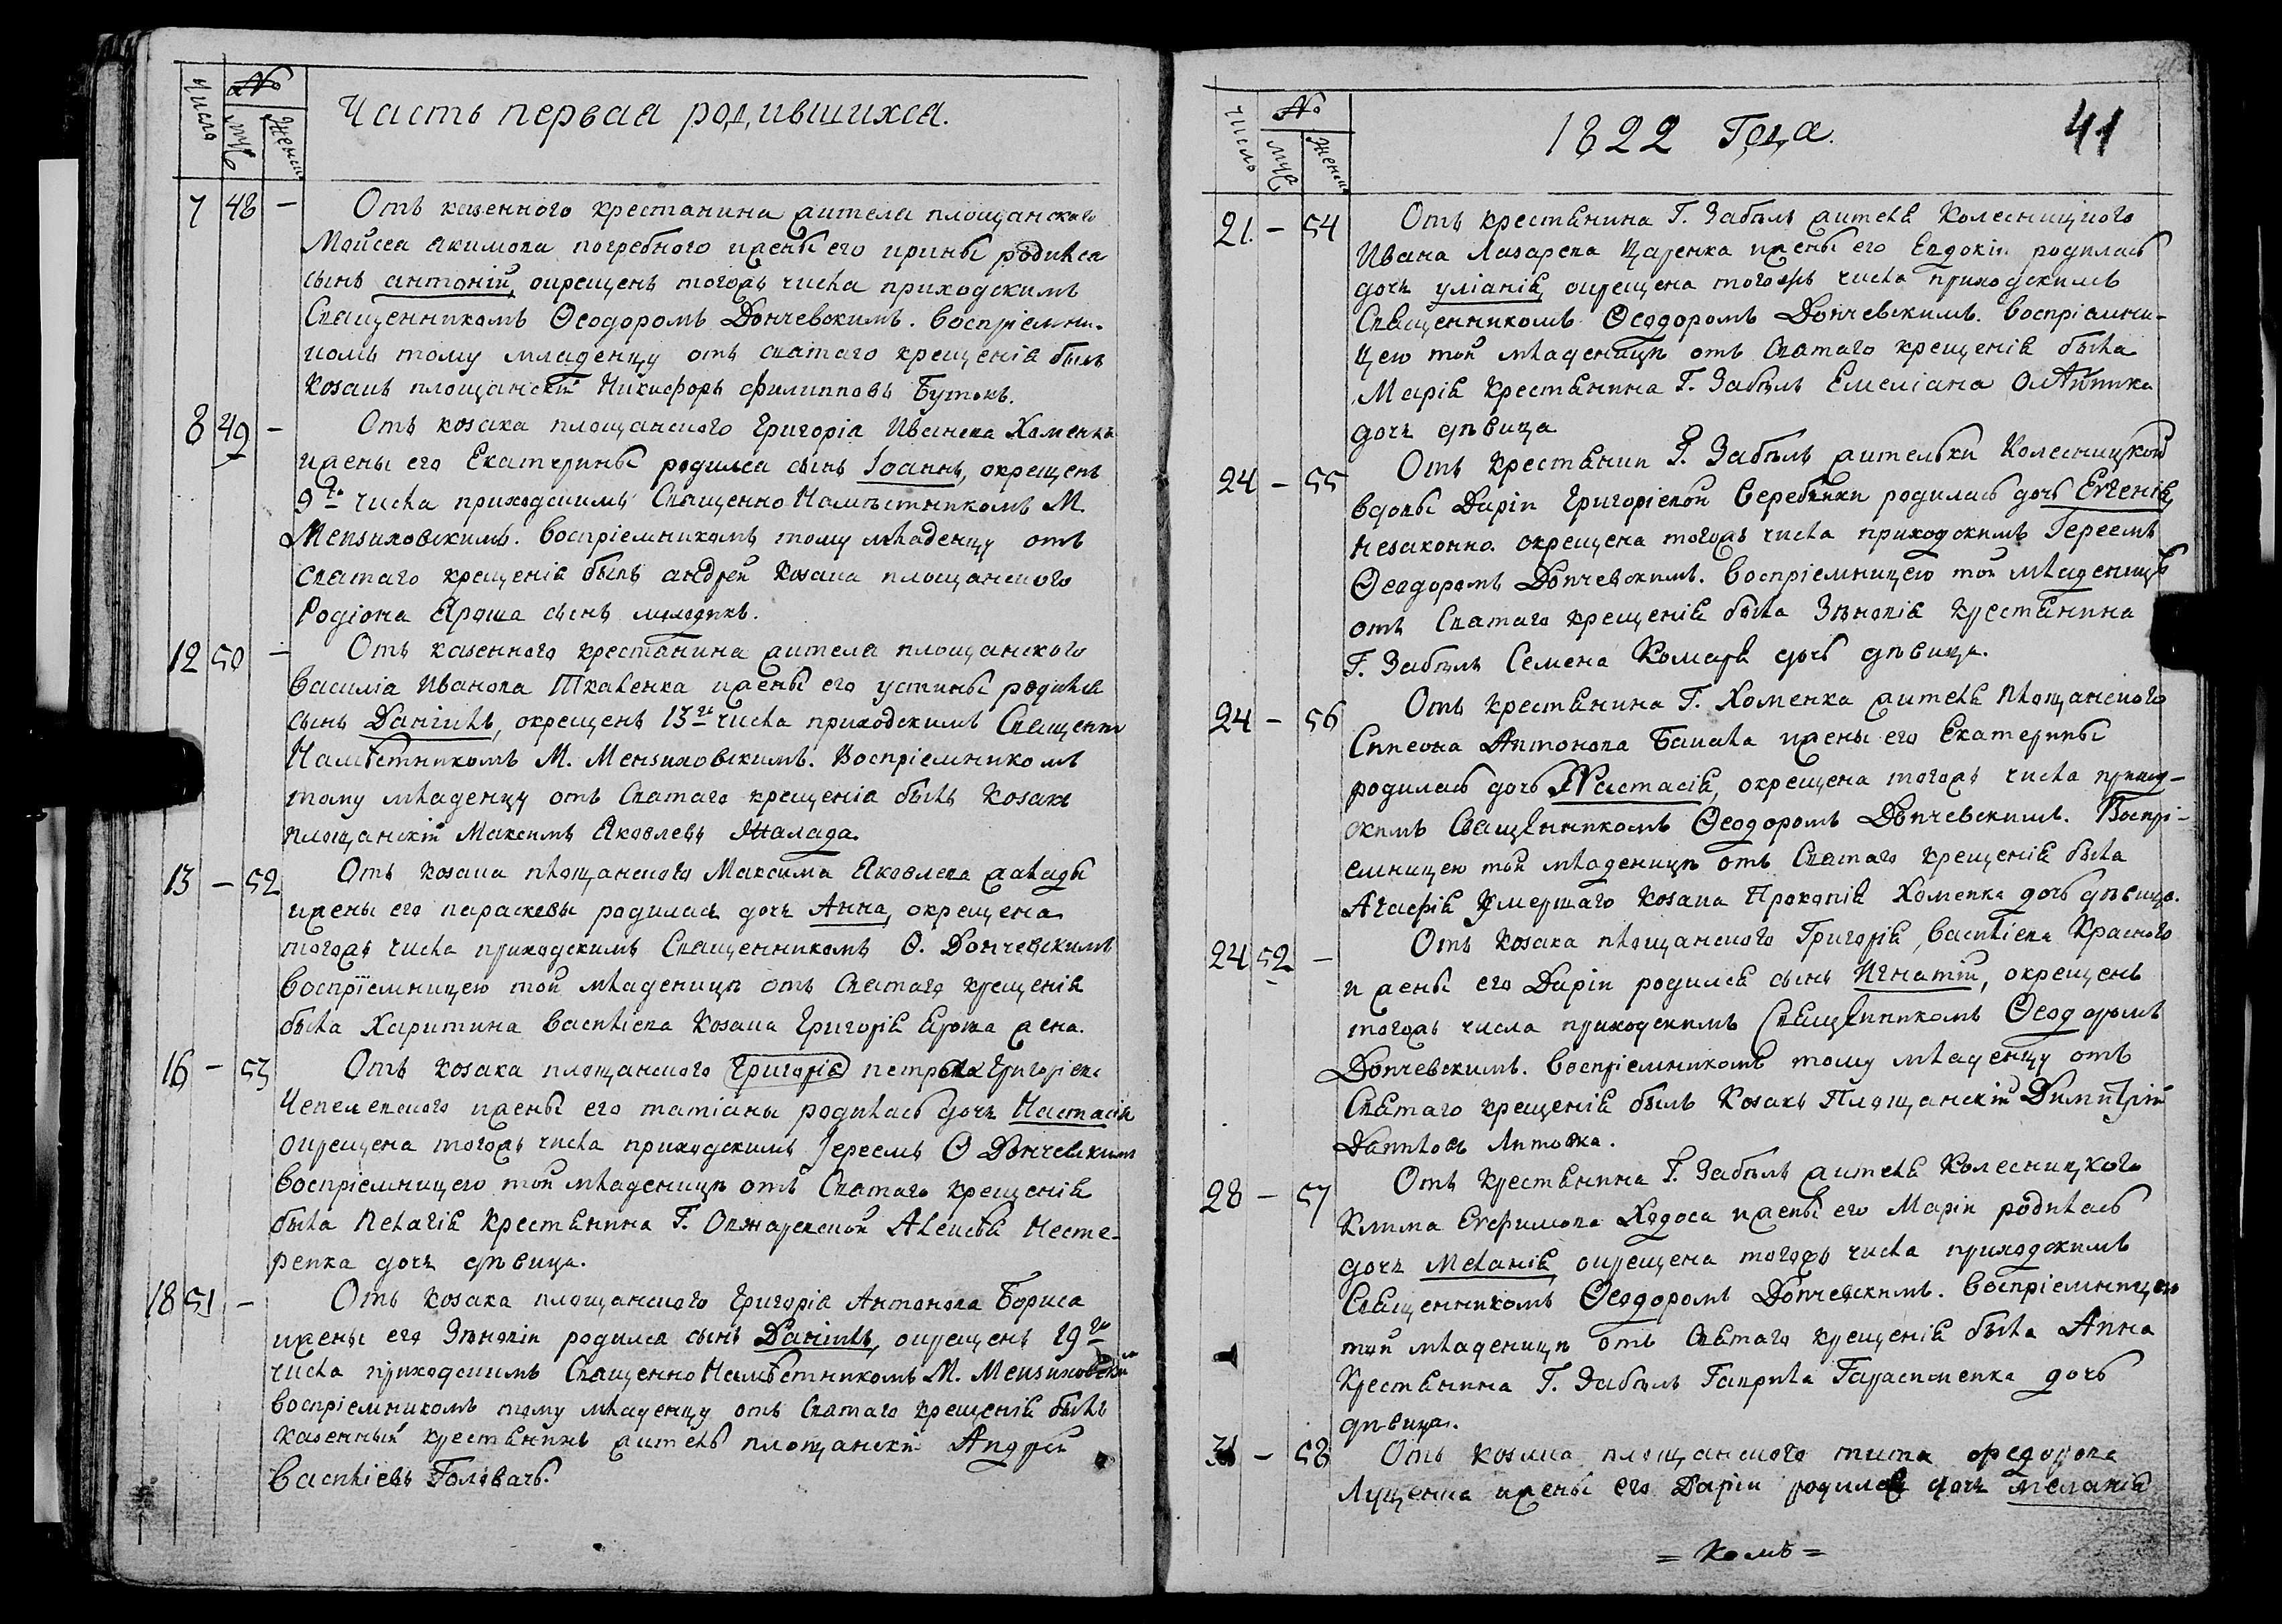 Число № муж женск
Часть первая родившихся.
7 48 — Отъ казенного крестянина жителя площанского
Мойсея Якимова погребного и жены его ирины родился
сынъ антоній, окрещенъ тогожъ числа приходскимъ
Священникомъ Ѳеодоромъ Дончевскимъ. воспріемни-
комъ тому младенцу отъ святаго крещенія былъ
козакъ площанскій Никифоръ филипповъ Бутокъ.
8 49 — Отъ козака площанского Григорія Иванева Хоменка
и жены его Екатерины родился сынъ Іоаннъ, окрещенъ
9го числа приходскимъ Священно Намѣстникомъ М.
Мензиховскимъ. воспріемникомъ тому младенцу отъ
Святаго крещенія былъ андрей козака площанского
Родіона Яроша сынъ молодикъ.
12 50 — Отъ казенного крестянина жителя площанского
Василія Иванова Ткаченка и жены его устины родился
сынъ Даніилъ, окрещенъ 13го числа приходскимъ Священно
Намѣстникомъ М. Мензиховскимъ. Воспріемникомъ
тому младенцу отъ Святаго крещенія былъ козакъ
площанскій Максимъ Яковлевъ Жалада.
13 — 52 Отъ козака площанского Максима Яковлева жалады
и жены его параскевы родилась дочь Анна, окрещена
тогожъ числа приходскимъ Священникомъ Ѳ. Дончевскимъ
воспріемницею той младеницѣ отъ Святаго крещенія
была Харитина васильева козака Григорія Яроша жена.
16 — 53 Отъ козака площанского Григорія петрова Григоріева
Чепелевского и жены его татіаны родилась дочь Настасія
окрещена тогожъ числа приходскимъ Іереемъ Ѳ Дончевскимъ
воспріемницею той младеницѣ отъ Святаго крещенія
была Пелагія крестянина Г. Алексѣя Несте-
ренка дочь дѣвица.
18 51 — Отъ козака площанского Григорія Антонова Бориса
и жены его Зѣновіи родился сынъ Даніилъ, окрещенъ 19го
числа приходскимъ Священно Намѣстникомъ М. Мензиховским
воспріемникомъ тому младенцу отъ Святаго крещенія былъ
казенный крестянинъ житель площанскій Андрей
васильевъ Головачъ.
Число № муж женск
1822 Года. 41
21. — 54 Отъ крестянина Г. Забѣлъ жителя Колесницкого
Ивана Лазарева Царенка и жены его Евдокіи родилась
дочь уліанія, окрещена тогожъ числа приходскимъ
Священникомъ Ѳеодоромъ Дончевскимъ. воспріемни-
цею той младеницѣ отъ Святаго крещенія была
Марія Крестянина Г. Забѣлъ Емеліана
дочь дѣвица
24 — 55 Отъ крестянки Г. Забѣлъ жительки Колесницкой
вдовы Даріи Григоріевой Серебянки родилась дочь Евгенія,
незаконно. окрещена тогожъ числа приходскимъ Іереемъ
Ѳеодоромъ Дончевскимъ. воспріемницею той младеницѣ
отъ Святаго крещенія была Зѣновія крестянина
Г. Забѣлъ Семена Комаря дочь дѣвица.
24 — 56 Отъ крестянина Г. Хоменка жителя площанского
Симеона Антонова Башла и жены его Екатерины
родилась дочь Настасія, окрещена тогожъ числа приход-
скимъ Священникомъ Ѳеодоромъ Дончевскимъ. Воспрі-
емницею той младеницѣ отъ Святаго крещенія была
Агафія умершаго козака Прокопія Хоменка дочь дѣвица.
24 52 — Отъ козака площанского Григорія васильева Красного
и жены его Даріи родился сынъ Игнатій, окрещенъ
тогожъ числа приходскимъ Священникомъ Ѳеодоромъ
Дончевскимъ. воспріемникомъ тому младенцу отъ
Святаго крещенія былъ Козакъ Площанскій Димитрій
Даниловъ Литовка.
28 — 57 Отъ крестянина Г. Забѣлъ жителя Колесницкого
Клима Евфимова Ходоса и жены его Маріи родилась
дочь Меланія, окрещена тогожъ числа приходскимъ
Священникомъ Ѳеодоромъ Дончевскимъ. воспріемницею
той младеницѣ отъ Святаго крещенія была Анна
Крестянина Г. Забѣлъ Гаврила Гарасименка дочь
дѣвица.
31 — 58 Отъ козака площанского тита федорова
Луценка и жены его Даріи родилась дочь меланія
= Комъ =